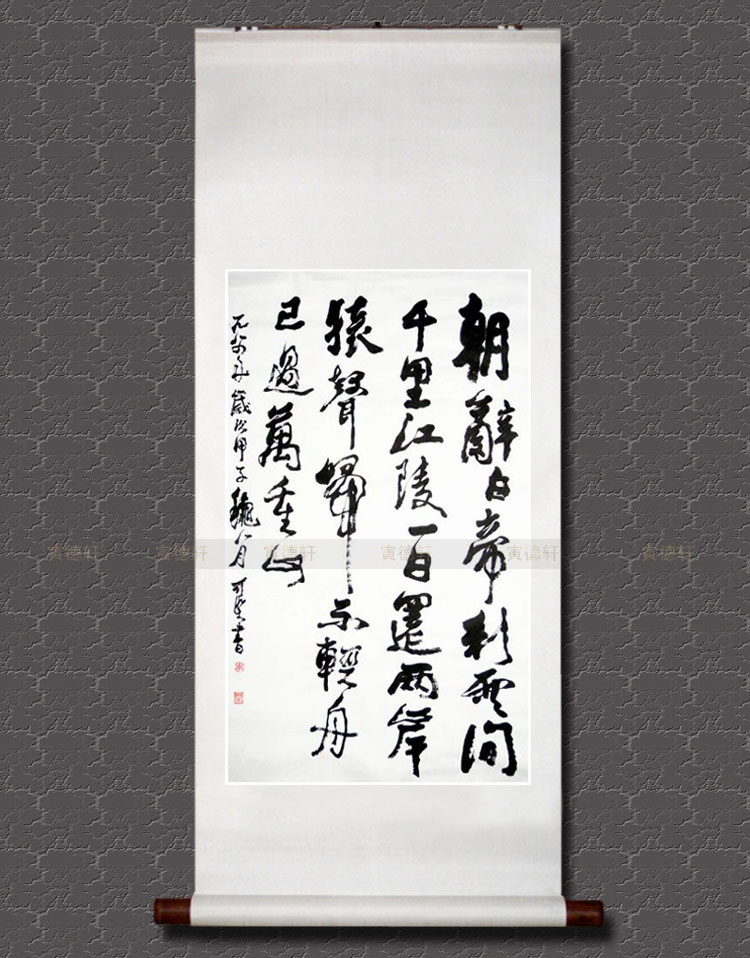 朝辭白帝彩雲間
千里江陵一日還兩岸
猿聲啼不輕舟
已過萬重山
歲次甲子穐八月 書
寅德轩 寅德轩 寅德轩 寅德轩 寅德轩